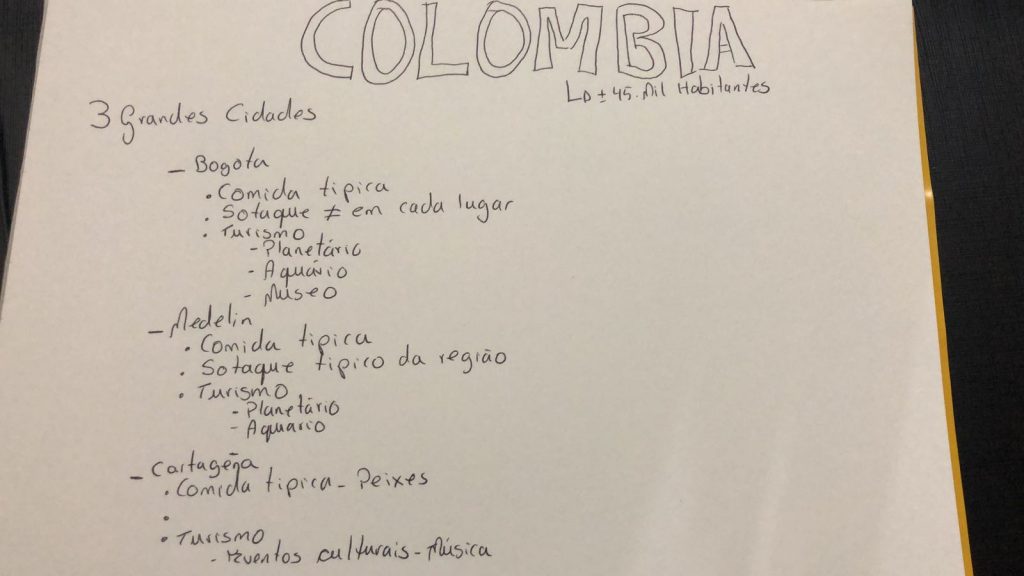 COLOMBIA
↳ ± 45. Mil Habitantes
3 Grandes Cidades
- Bogota
• Comida tipica
• Sotaque ≠ em cada lugar
• Turismo
- Planetário
- Aquário
- Museo
- Medelin
• Comida tipica
• Sotaque tipico da região
• Turismo
- Planetário
- Aquario
- Cartageña
• Comida tipica - Peixes
•
• Turismo
- Eventos culturais - Música